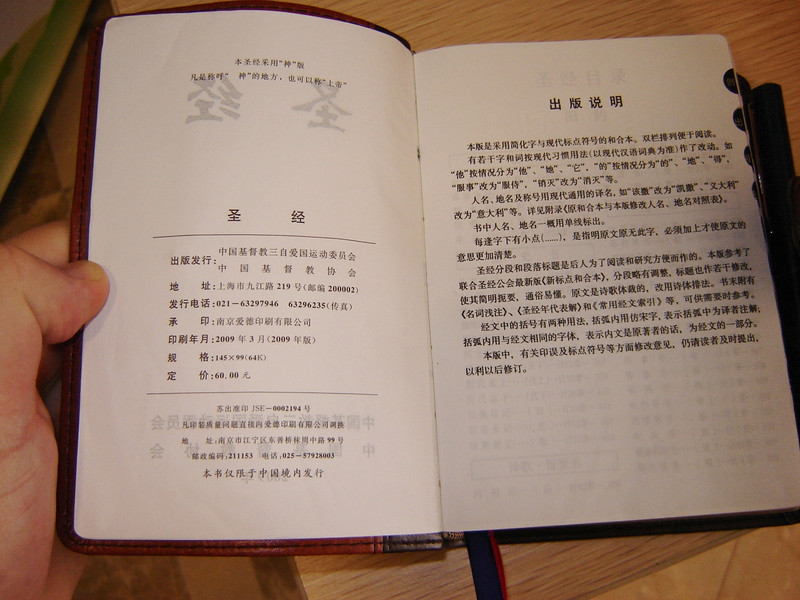 本圣经采用“神”版
凡是称呼“ 神”的地方，也可以称“上帝”
圣 经
出版发行：中国基督教三自爱国运动委员会
中国基督教协会
地 址：上海市九江路 219 号（邮编 200002）
发行电话：021-63297946 63296235（传真）
承 印：南京爱德印刷有限公司
印刷年月：2009 年 3 月（2009 年版）
规 格：145×99（64K）
定 价：60.00 元
苏出准印 JSE-0002194 号
凡印装质量问题直接向爱德印刷有限公司调换
地 址：南京市江宁区东善桥林周中路 99 号
邮政编码：211153 电话：025-57928003
本书仅限于中国境内发行
出版说明
本版是采用简化字与现代标点符号的和合本。双栏排列便于阅读。
有若干字和词按现代习惯用法（以现代汉语词典为准）作了改动。如
“他”按情况分为“他”、“她”、“它”，“的”按情况分为“的”、“地”、“得”，
“服事”改为“服侍”，“销灭”改为“消灭”等。
人名、地名及称号用现代通用的译名，如“该撒”改为“凯撒”、“义大利”
改为“意大利”等。详见附录《原和合本与本版修改人名、地名对照表》。
书中人名、地名一概用单线标出。
每逢字下有小点（……），是指明原文原无此字，必须加上才使原文的
意思更加清楚。
圣经分段和段落标题是后人为了阅读和研究方便而作的。本版参考了
联合圣经公会最新版《新标点和合本》，分段略有调整，标题也作若干修改，
使其简明扼要，通俗易懂。原文是诗歌体裁的，改用诗体排法。书末附有
《名词浅注》、《圣经年代表解》和《常用经文索引》等，可供需要时参考。
经文中的括号有两种用法，括弧内用仿宋字，表示括弧中为译者注解；
括弧内用与经文相同的字体，表示内文是原著者的话，为经文的一部分。
本版中，有关印误及标点符号等方面修改意见，仍请读者及时提出，
以利以后修订。